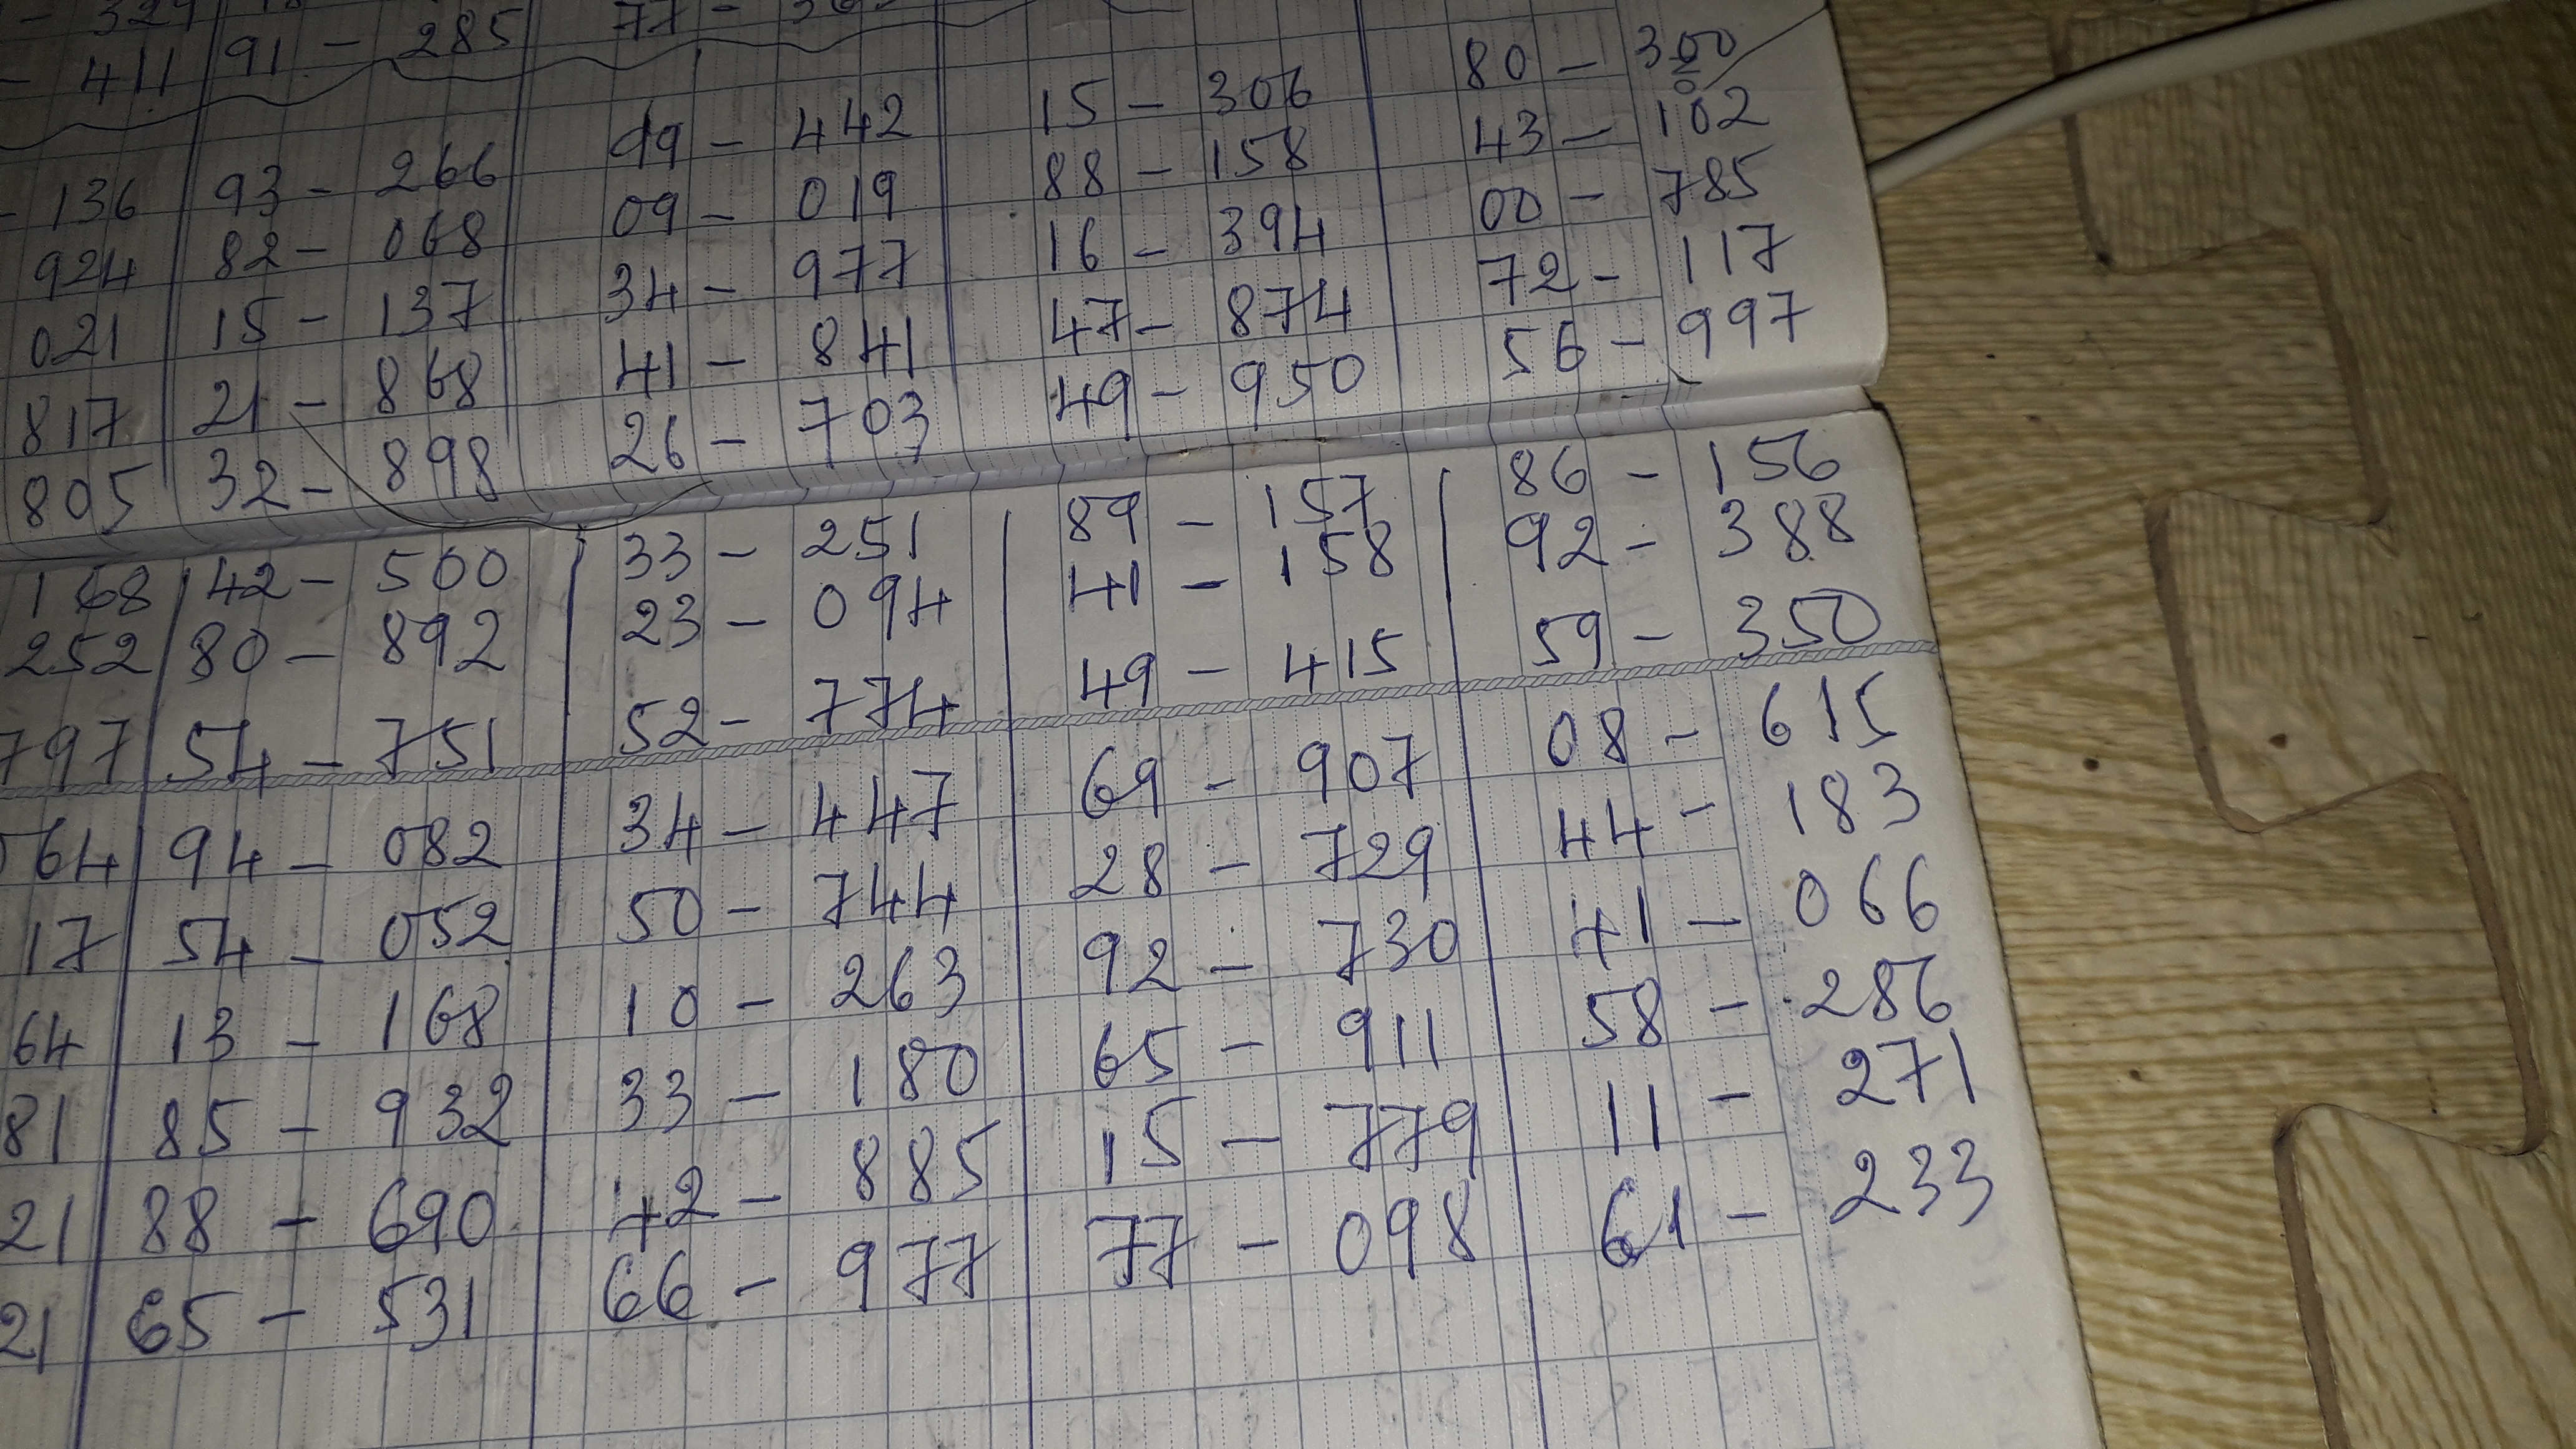 411 91 - 285
80 - 300
136 93 - 266 99 - 442 15 - 306 43 - 102
924 82 - 068 09 - 019 88 - 158 00 - 785
021 15 - 137 34 - 977 16 - 394 72 - 117
817 21 - 868 41 - 841 47 - 874 56 - 997
805 32 - 898 26 - 703 49 - 950
168 42 - 500 33 - 251 89 - 157 86 - 156
252 80 - 892 23 - 094 41 - 158 92 - 388
797 54 - 751 52 - 774 49 - 415 59 - 350
64 94 - 082 34 - 447 69 - 907 08 - 615
17 54 - 052 50 - 744 28 - 729 44 - 183
64 13 - 168 10 - 263 92 - 730 41 - 066
81 85 - 932 33 - 180 65 - 911 58 - 286
21 88 - 690 42 - 885 15 - 779 11 - 271
21 65 - 531 66 - 977 77 - 098 61 - 233